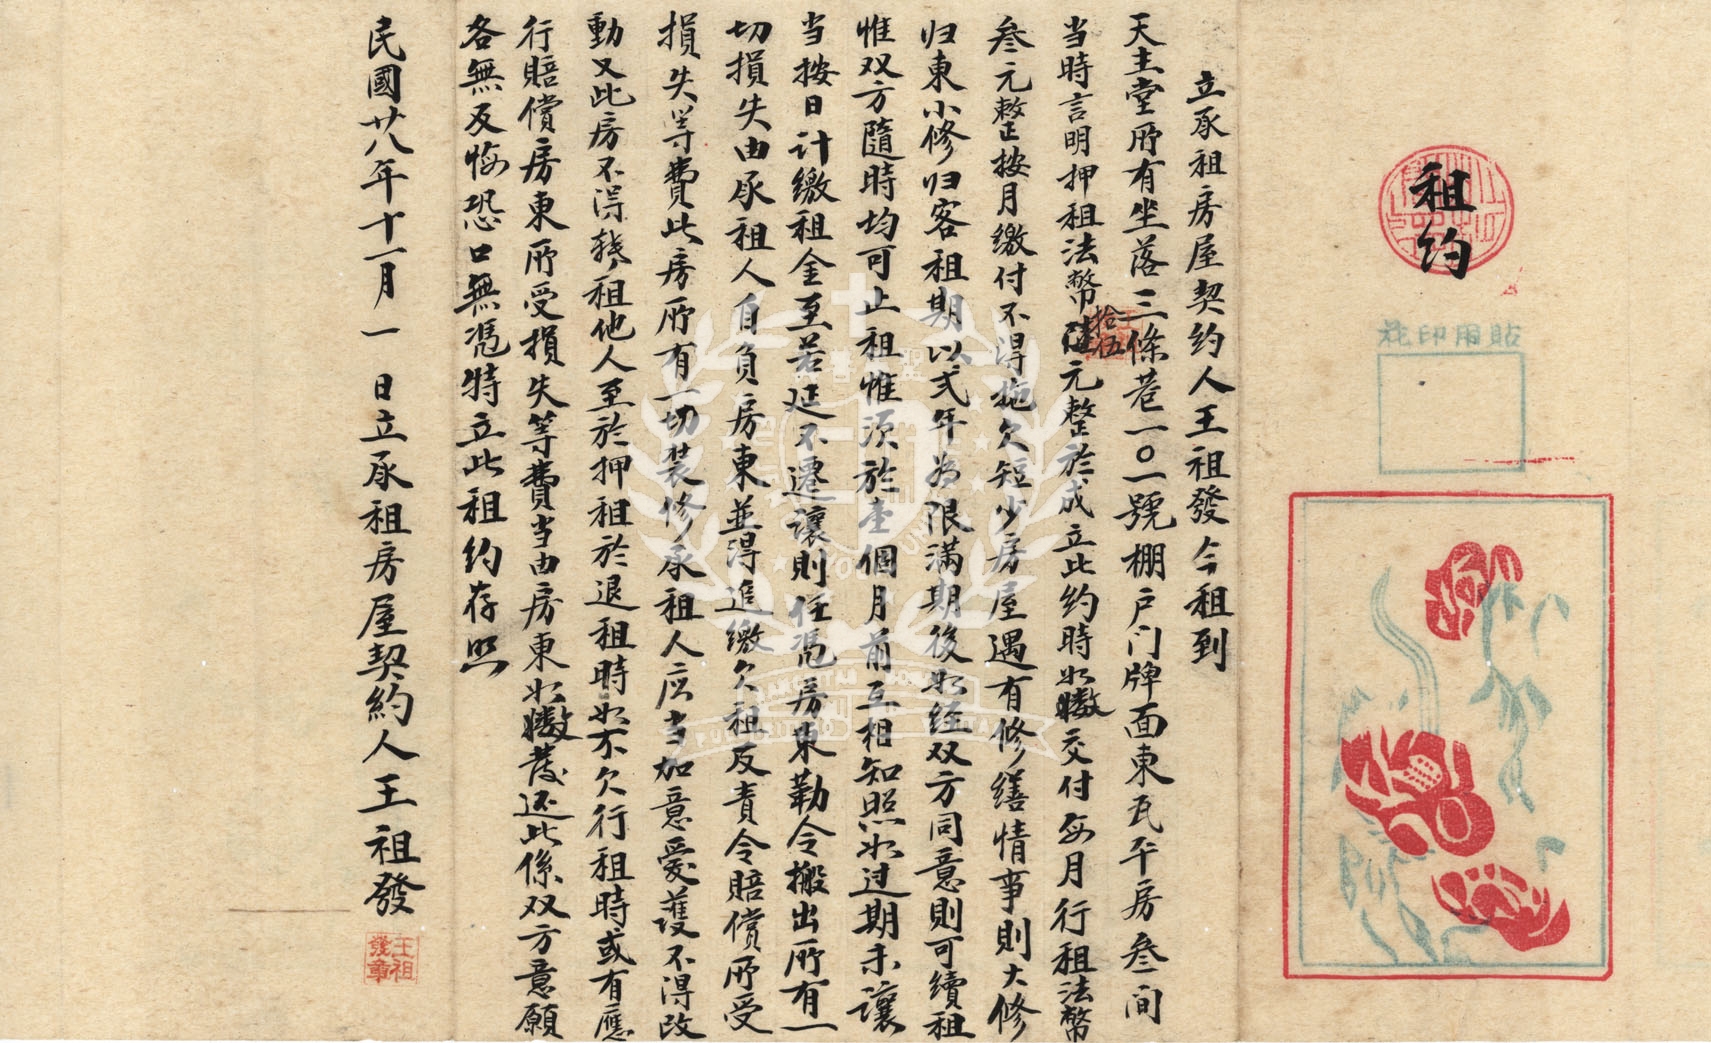 租约
貼用印花
立承租房屋契约人王祖發今租到
天主堂所有坐落三條巷一〇一號棚户门牌面東瓦平房叁间
当時言明押租法幣拾伍元整於成立此约時如數交付每月行租法幣
叁元整按月繳付不得拖欠短少房屋遇有修繕情事則大修
归東小修归客租期以弍年為限满期後如经双方同意則可續租
惟双方隨時均可止租惟须於壹個月前互相知照如过期未讓
当按日计繳租金至若延不遷讓則任凭房東勒令搬出所有一
切損失由承租人自負房東並得追繳欠租及責令賠償所受
損失等費此房所有一切裝修承租人应当加意爱護不得改
動又此房不得转租他人至於押租於退租時如不欠行租時或有應
行賠償房東所受損失等費当由房東如數發还此係双方意願
各無反悔恐口無憑特立此租约存照
民國廿八年十一月一日立承租房屋契約人王祖發
王祖發章